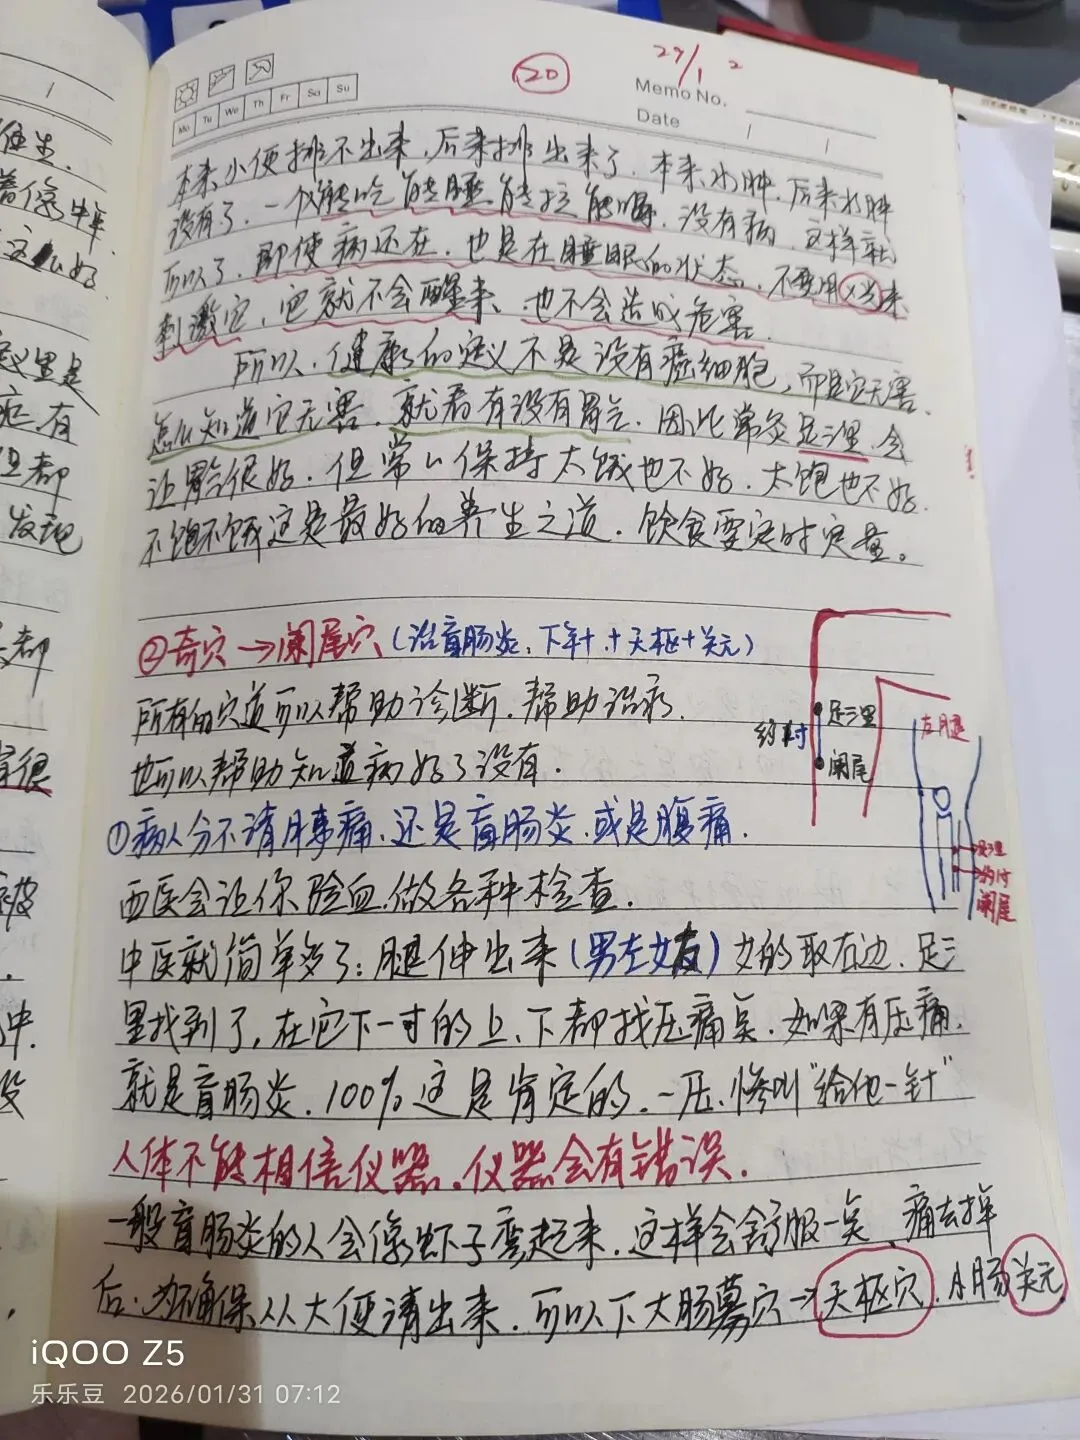 29/1 2
20
Memo No.
Mo Tu We Th Fr Sa Su
Date
本来小便排不出来，后来排出来了，本来水肿，后来水肿
没有了，一个人能吃能睡能拉能喝，没有病，这样就
可以了，即使病还在，也是在睡眠的状态，不要用X光来
刺激它，它就不会醒来，也不会造成危害。
所以，健康的定义不是没有癌细胞，而是它无害。
怎么知道它无害，就看有没有胃气，因此常灸足三里，会
让胃气很好，但常人保持太饿也不好，太饱也不好，
不饱不饿这是最好的养生之道，饮食要定时定量。
②奇穴→阑尾穴（治盲肠炎，下针，+天枢+关元）
所有的穴道可以帮助诊断，帮助治病，
也可以帮助知道病好了没有．
足三里
约1寸
阑尾
左腿
足三里
约1寸
阑尾
①病人分不清胰痛，还是盲肠炎，或是腹痛．
西医会让你验血，做各种检查．
中医就简单多了：腿伸出来（男左女右）女的取右边，足三
里找到了，在它下一寸的上、下都找压痛点．如果有压痛，
就是盲肠炎，100%这是肯定的，一压，惨叫“给他一针”
人体不能相信仪器，仪器会有错误．
一般盲肠炎的人会像虾子弯起来，这样会舒服一点，痛去掉
后，为确保从大便清出来，可以下大肠募穴→天枢穴，小肠关元
iQOO Z5
乐乐豆 2026/01/31 07:12